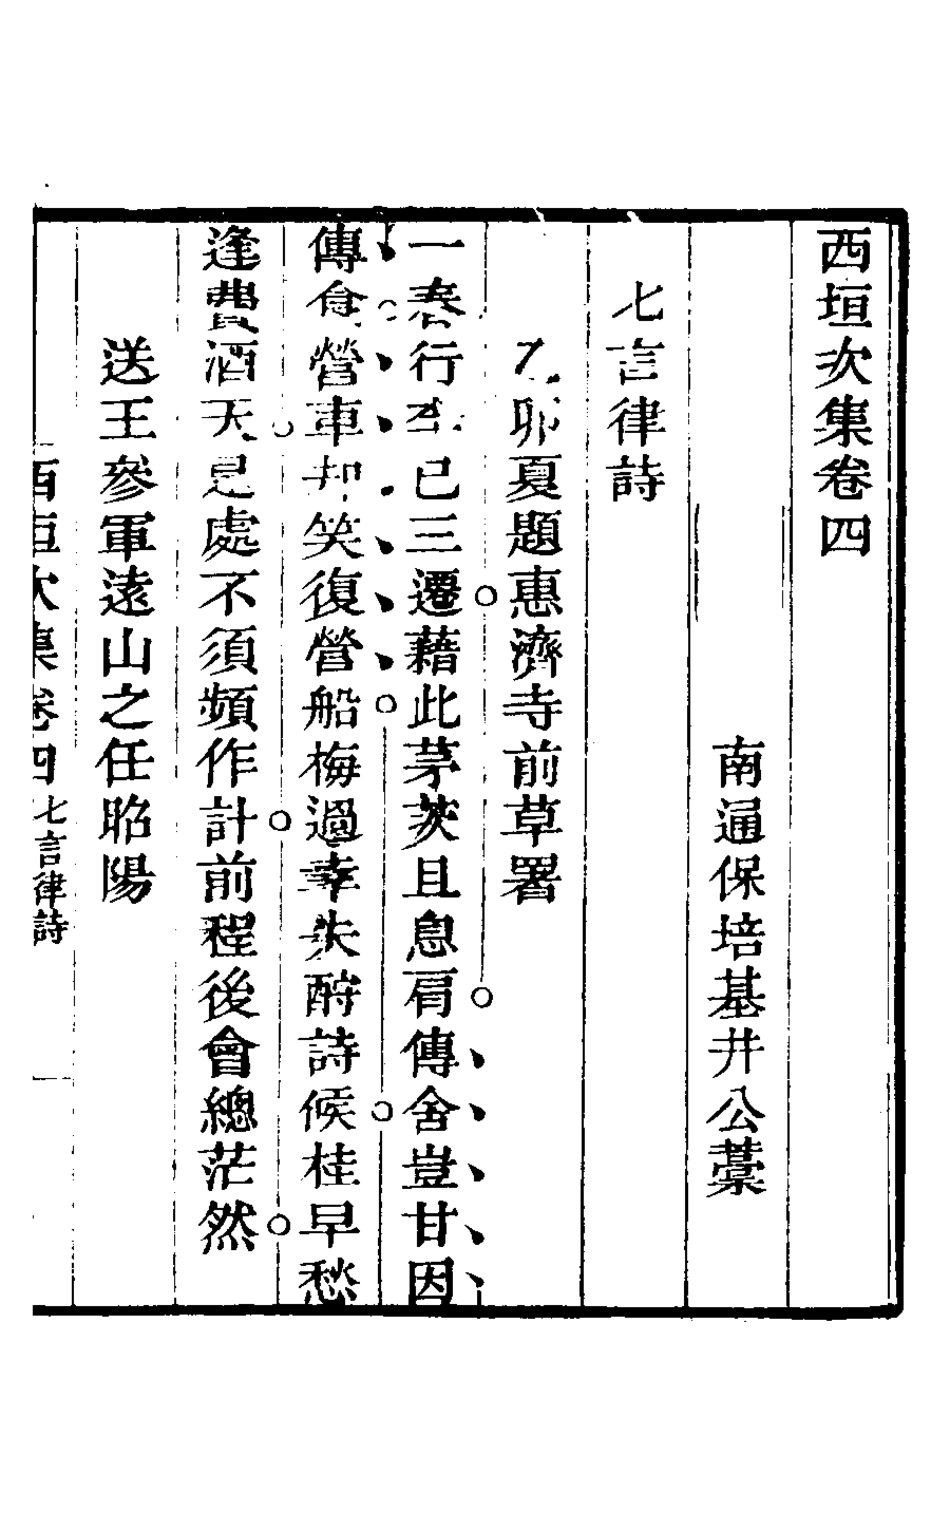 西垣次集卷四
南通保培基井公藁
七言律詩
乙卯夏題惠濟寺前草署
一春行李已三遷藉此茅茨且息肩傳舍豈甘因
傳食營車却笑復營船梅過幸失酧詩候桂早愁
逢費酒天是處不須頻作計前程後會總茫然
送王參軍遠山之任昭陽
西垣次集卷四 七言律詩 一